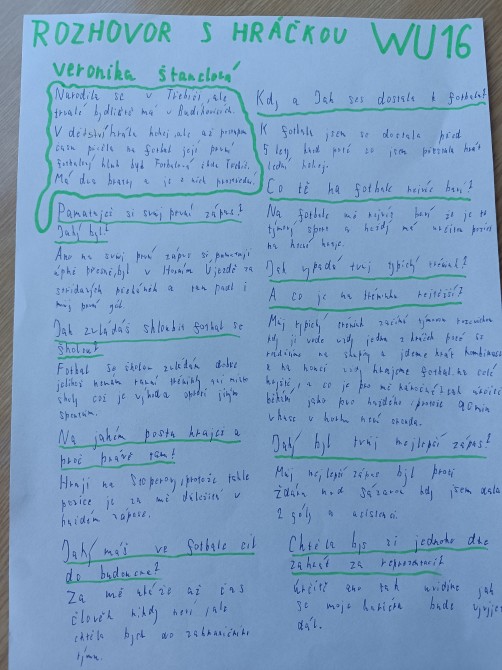 ROZHOVOR S HRÁČKOU WU16
veronika štanclová
Narodila se v Třebíči, ale
trvalé bydliště má v Budíkovicích.
V dětství hrála hokej, ale až
času přešla na fotbal její první
fotbalový klub byl Fotbalový Třebíč.
Má dva bratry a je z nich prostřední.
Pamatuješ si svůj první zápas?
Jaký byl?
Ano na svůj první zápas si pamatuji
úplně přesně, byl v Horním Újezdě za
a tam padl i
můj první gól.
Jak zvládáš skloubit fotbal se
školou?
Fotbal se školou zvládám dobře
jelikož nemám ranní tréninky ani místo
školy což je výhoda oproti jiným
sportům.
Na jakém postu hraješ a
proč právě tam?
Hraji na Stoperovi, protože tahle
pozice je za mě důležitá v
každém zápase.
Jaký máš ve fotbale cíl
do budoucna?
Za mě ukáže až čas
člověk nikdy neví, ale
chtěla bych do zahraničního
týmu.
Kdy a Jak ses dostala k fotbalu?
K fotbalu jsem se dostala před
5 lety, kdy poté co jsem přestala hrát
lední hokej.
Co tě na fotbale nejvíc baví?
Na fotbale mě nejvíc baví že je to
týmový sport a každý má určitou pozici
na které hraje.
Jak vypadá tvůj typický trénink?
A co je na tréninku nejtěžší?
Můj typický trénink začíná týmovou rozcvičkou
kdy ji vede vždy jedna z hráček poté se
rozdělíme na skupiny a jdeme hrát kombinace
a na konci vždy hrajeme fotbal na celé
hřiště, a co je pro mě náročné? tak určitě
běhání jako pro každého protože 90 min
v kuse v horku není sranda.
Jaký byl tvůj nejlepší zápas?
Můj nejlepší zápas byl proti
Žďáru nad Sázavou kdy jsem dala
2 góly a asistenci.
Chtěla bys si jednoho dne
zahrát za reprezentaci?
Určitě ano tak uvidíme jak
se moje kariéra bude vyvíjet
dál.